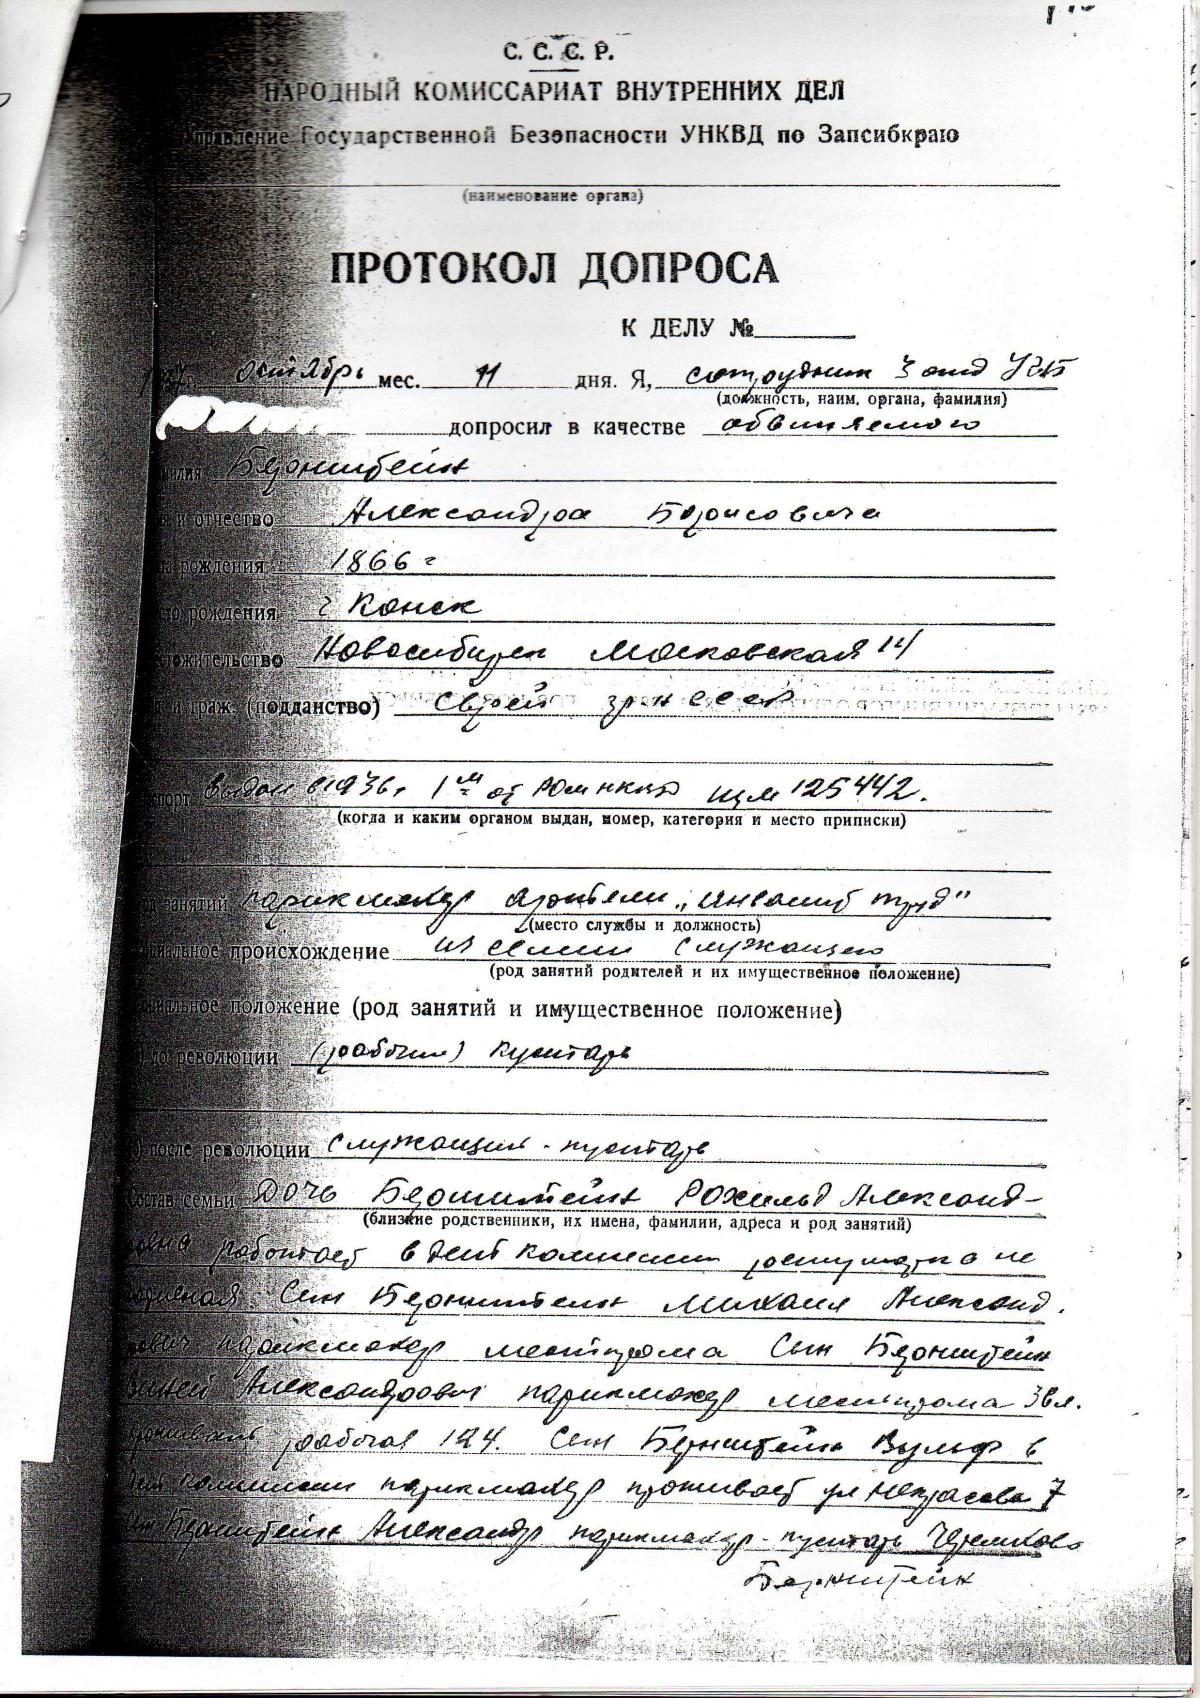 С. С. С. Р.
НАРОДНЫЙ КОМИССАРИАТ ВНУТРЕННИХ ДЕЛ
Управление Государственной Безопасности УНКВД по Запсибкраю
(наименование органа)
ПРОТОКОЛ ДОПРОСА
К ДЕЛУ №
1937г. октябрь мес. 11 дня. Я, сотрудник 3 отд УГБ
(должность, наим. органа, фамилия)
допросил в качестве обвиняемого
милия Бернштейн
я и отчество Александра Борисовича
а рождения 1866 г
то рождения г Канск
тожительство Новосибирск Московская 14
и граж. (подданство) Еврей гр-н СССР
порт выдан 1936г 125442.
(когда и каким органом выдан, номер, категория и место приписки)
од занятий парикмахер артели „Инвалид труд"
(место службы и должность)
циальное происхождение из семьи служащего
(род занятий родителей и их имущественное положение)
циальное положение (род занятий и имущественное положение)
до революции (рабочий) кустарь
) после революции Служащий - кустарь
Состав семьи Дочь Бернштейн Рохиль Александ-
(близкие родственники, их имена, фамилии, адреса и род занятий)
ровна работает в не
Сын Бернштейн Михаил Александ.
рович парикмахер Сын Бернштейн
Александрович парикмахер
рабочая 124. Сын Бернштейн Вульф в
парикмахер проживает ул Некрасова 7
Бернштейн Александр парикмахер - кустарь Черемхово
Бернштейн